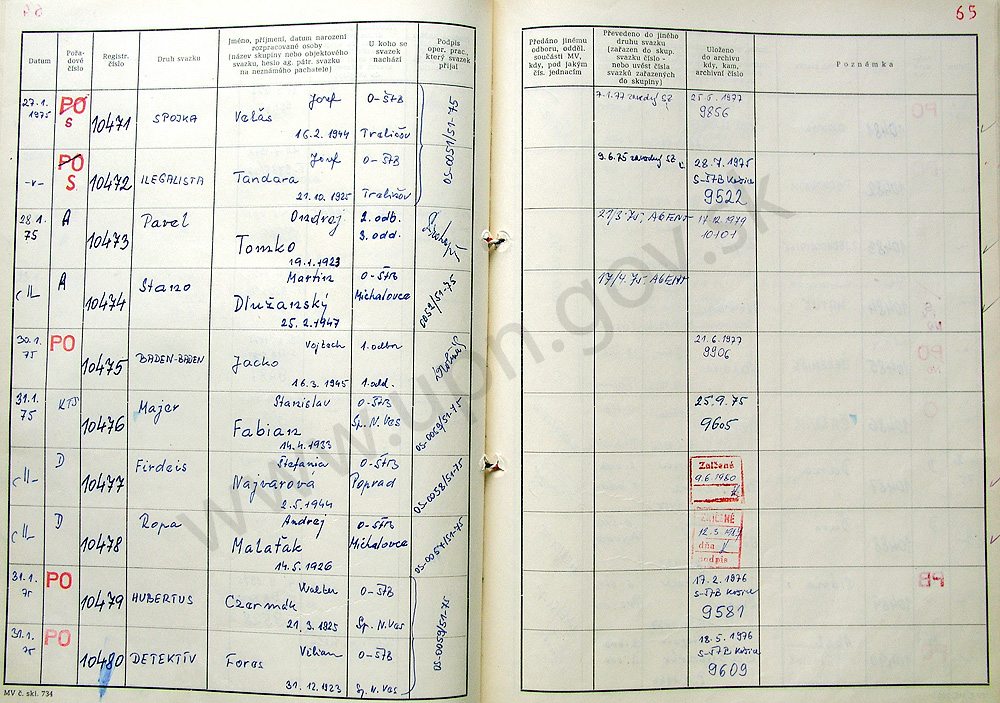 65
Datum
Pořadové číslo
Registr. číslo
Druh svazku
Jméno, příjmení, datum narození
rozpracované osoby
(název skupiny nebo objektového
svazku, heslo ag. pátr. svazku
na neznámého pachatele)
U koho se
svazek
nachází
Podpis
oper. prac.,
který svazek
přijal
Předáno jinému
odboru, odděl.
součásti MV,
kdy, pod jakým
čís. jednacím
Převedeno do jiného
druhu svazku
(zařazen do skup.
svazku číslo -
nebo uvést čísla
svazků zařazených
do skupiny)
Uloženo
do archivu
kdy, kam,
archivní číslo
Poznámka
27.1. PO Jozef O-ŠTB 7.1.77 25.5.1977
1975 S 10471 SPOJKA Velás 9856
16.2.1944 Trebišov OS-0051/51-75
PO Jozef O-ŠTB 9.6.75
-v- S 10472 ILEGALISTA Tandara 28.7.1975
21.10.1925 Trebišov S-ŠTB Košice
9522
28.1. A Pavel Ondrej 2. odb. 21/3.75. AGENT 17.12.1979
75 10473 Tomko 3. odd. 10101
19.1.1923
A Stano Martin O-ŠTB 17/4.75. AGENT
10474 Dlužanský Michalovce 0052/51-75
25.2.1947
30.1. PO Vojtech 1. odbor 21.6.1977
75 10475 BADEN-BADEN Jacko 9906
16.3.1945 1. odd.
31.1. KTS Majer Stanislav O-ŠTB 25.9.75
75 10476 Fabian Sp. N. Ves 9605
14.4.1933 OS-0059/51-75
D Firdeis Štefania O-ŠTB Zničené
10477 Najvarova Poprad 9.6.1980
2.5.1944 OS-0058/51-75
D Ropa Andrej O-ŠTB ZNIČENÉ
10478 Malaťak Michalovce 12.3.
14.5.1926 OS-0054/51-75 dňa
podpis
31.1. PO Walter O-ŠTB 17.2.1976
75 10479 HUBERTUS Czermák S-ŠTB Košice
21.3.1925 Sp. N. Ves OS-0059/51-75 9581
31.1. PO Viliam O-ŠTB 18.5.1976
75 10480 DETEKTÍV Foras S-ŠTB Košice
31.12.1923 Sp. N. Ves 9609
MV č. skl. 734
www.upn.gov.sk